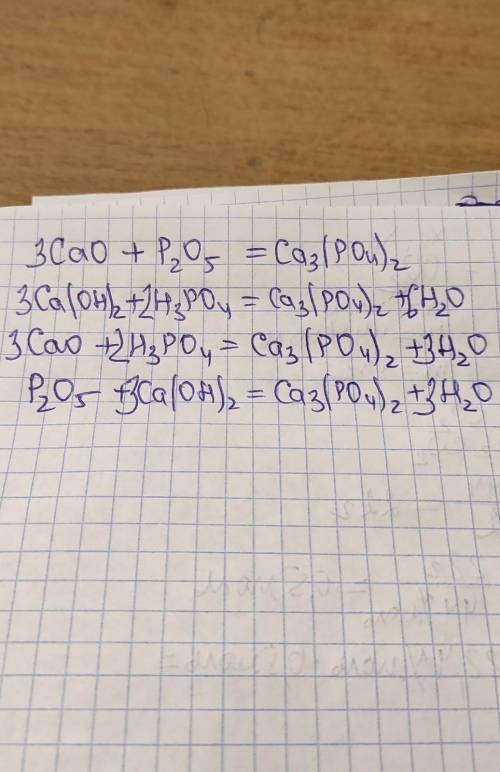 3CaO + P₂O₅ = Ca₃(PO₄)₂
3Ca(OH)₂ + 2H₃PO₄ = Ca₃(PO₄)₂ + 6H₂O
3CaO + 2H₃PO₄ = Ca₃(PO₄)₂ + 3H₂O
P₂O₅ + 3Ca(OH)₂ = Ca₃(PO₄)₂ + 3H₂O